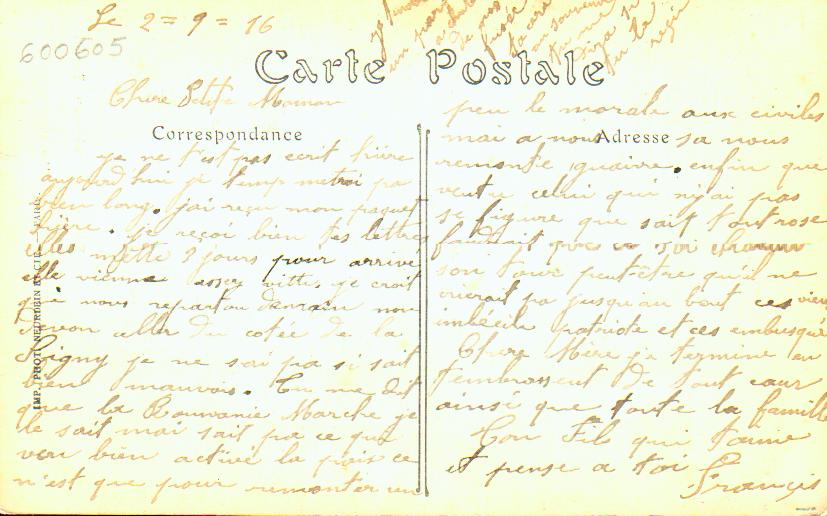 Le 2=9=16
600605
Carte Postale
Chere Petite Maman
Correspondance
Adresse
je ne t'est pas ecrit hière
aujourd'hui je temp metroi pa
bien long. jai reçu mon paquet
hière. je reçoi bien tes lettres
elles mette 3 jours pour arrive
elle vienne assez vitte, je croit
que nous repartou demain nou
devon aller du cotée de la
je ne sai pa si sait
bien mauvois. Tu me dit
que la Roumanie Marche je
le sait mai sait pa ce qui
ven bien active la paix ce
n'est que pour remonter un
peu le morale aux civiles
mai a nous sa nous
remonte guaire. enfin que
veut u celui qui n'y ai pas
se figure que sait tout rose
faudrait
son tour peut-être qu'il ne
pa jusqu'au bout ces vieu
imbécile patriote et ces embusqué
Chere Mère je termine en
t'embrassent de tout cœur
ainsi que toute la famille
Ton Fils qui t'aime
et pense a toi François
IMP. PHOT. NEURDEIN ET CIE. PARIS